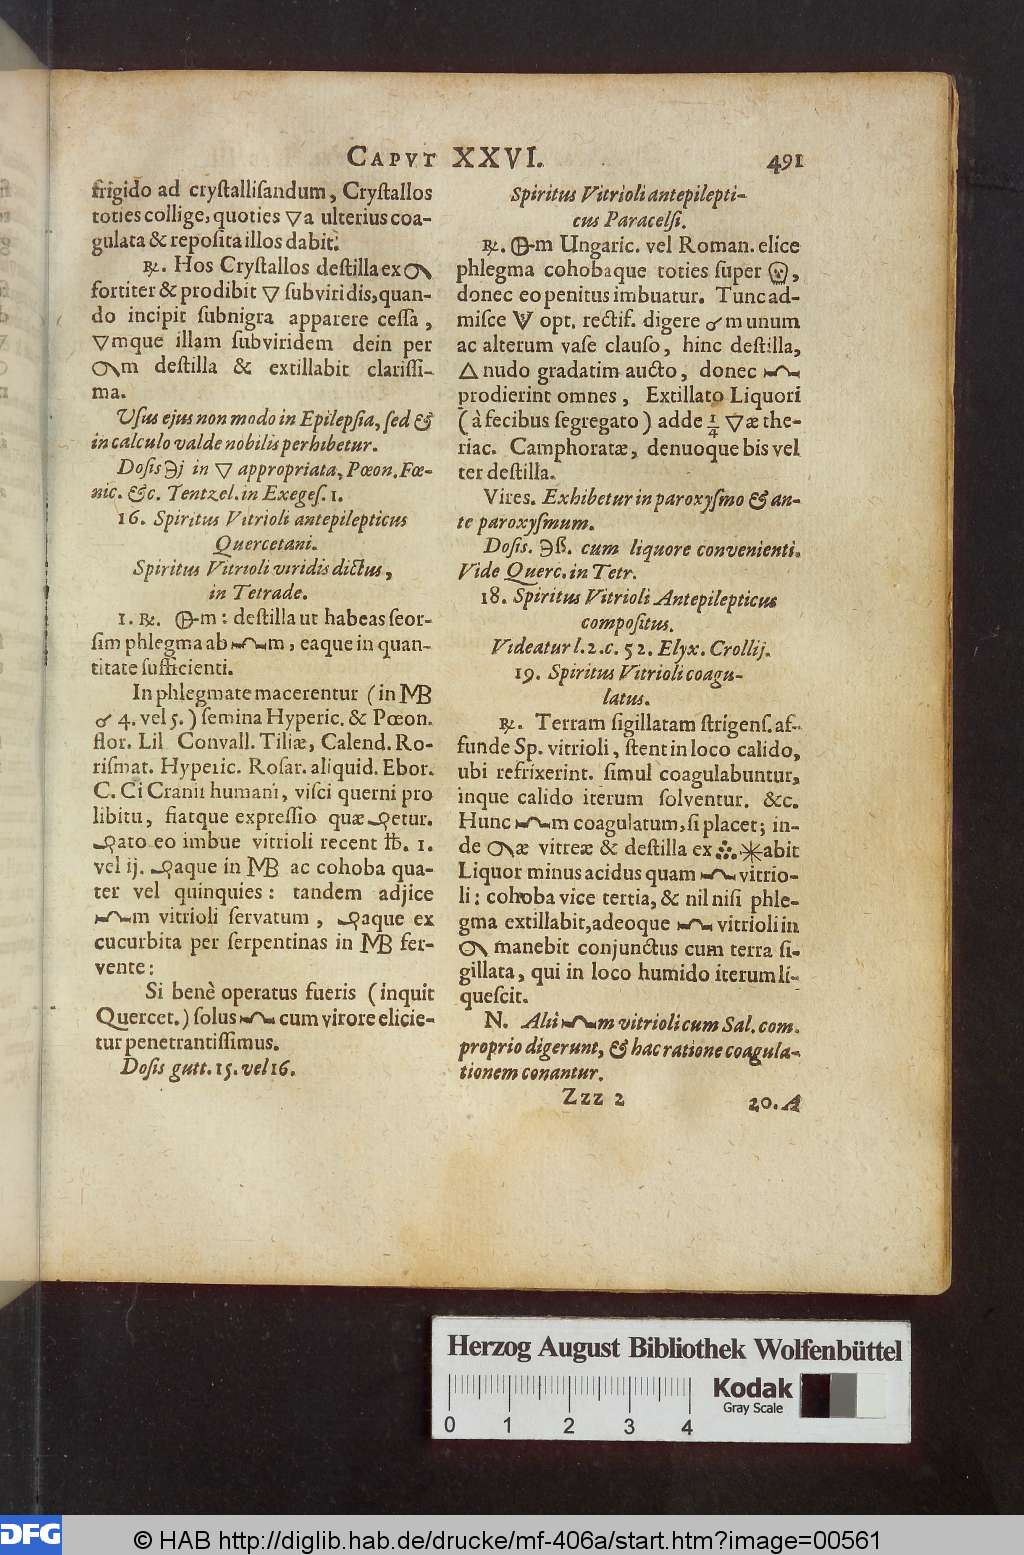 CAPVT XXVI. 491
frigido ad crystallisandum, Crystallos
toties collige, quoties ▽a ulterius coa-
gulata & reposita illos dabit.
℞. Hos Crystallos destilla ex
fortiter & prodibit ▽ subviridis, quan-
do incipit subnigra apparere cessa,
▽mque illam subviridem dein per
m destilla & extillabit clarissi-
ma.
Usus ejus non modo in Epilepsia, sed &
in calculo valde nobilis perhibetur.
Dosis ℈j in ▽ appropriata, Pœon. Fœ-
nic. &c. Tentzel. in Exeges. 1.
16. Spiritus Vitrioli antepilepticus
Quercetani.
Spiritus Vitrioli viridis dictus,
in Tetrade.
1. ℞. m: destilla ut habeas seor-
sim phlegma ab m, eaque in quan-
titate sufficienti.
In phlegmate macerentur (in MB
4. vel 5.) semina Hyperic. & Pœon.
flor. Lil Convall. Tiliæ, Calend. Ro-
rismat. Hyperic. Rosar. aliquid. Ebor.
C. Ci Cranii humani, visci querni pro
libitu, fiatque expressio quæ etur.
ato eo imbue vitrioli recent ℔. 1.
vel ij. aque in MB ac cohoba qua-
ter vel quinquies: tandem adjice
m vitrioli servatum, aque ex
cucurbita per serpentinas in MB fer-
vente:
Si benè operatus fueris (inquit
Quercet.) solus cum virore elicie-
tur penetrantissimus.
Dosis gutt. 15. vel 16.
Spiritus Vitrioli antepilepti-
cus Paracelsi.
℞. m Ungaric. vel Roman. elice
phlegma cohobaque toties super ,
donec eo penitus imbuatur. Tunc ad-
misce opt. rectif. digere m unum
ac alterum vase clauso, hinc destilla,
△ nudo gradatim aucto, donec
prodierint omnes, Extillato Liquori
(à fecibus segregato) adde 1/4 ▽æ the-
riac. Camphoratæ, denuoque bis vel
ter destilla.
Vires. Exhibetur in paroxysmo & an-
te paroxysmum.
Dosis. ℈ß. cum liquore convenienti.
Vide Querc. in Tetr.
18. Spiritus Vitrioli Antepilepticus
compositus.
Videatur l. 2. c. 52. Elyx. Crollij.
19. Spiritus Vitrioli coagu-
latus.
℞. Terram sigillatam strigens. af-
funde Sp. vitrioli, stent in loco calido,
ubi refrixerint. simul coagulabuntur,
inque calido iterum solventur. &c.
Hunc m coagulatum, si placet; in-
de æ vitreæ & destilla ex abit
Liquor minus acidus quam vitrio-
li: cohoba vice tertia, & nil nisi phle-
gma extillabit, adeoque vitrioli in
manebit conjunctus cum terra si-
gillata, qui in loco humido iterum li-
quescit.
N. Alii m vitrioli cum Sal. com.
proprio digerunt, & hac ratione coagula-
tionem conantur.
Zzz 2 20. A
Herzog August Bibliothek Wolfenbüttel
Kodak
Gray Scale
0 1 2 3 4
DFG
© HAB http://diglib.hab.de/drucke/mf-406a/start.htm?image=00561